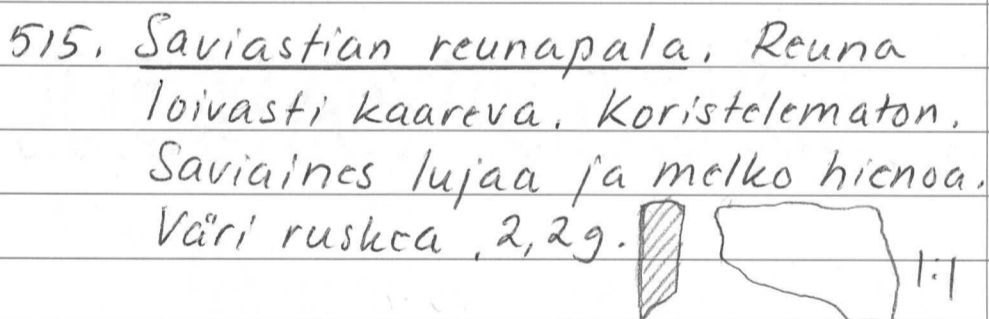 515. Saviastian reunapala. Reuna
loivasti kaareva. Koristelematon.
Saviaines lujaa ja melko hienoa.
Väri ruskea, 2,2g.
1:1